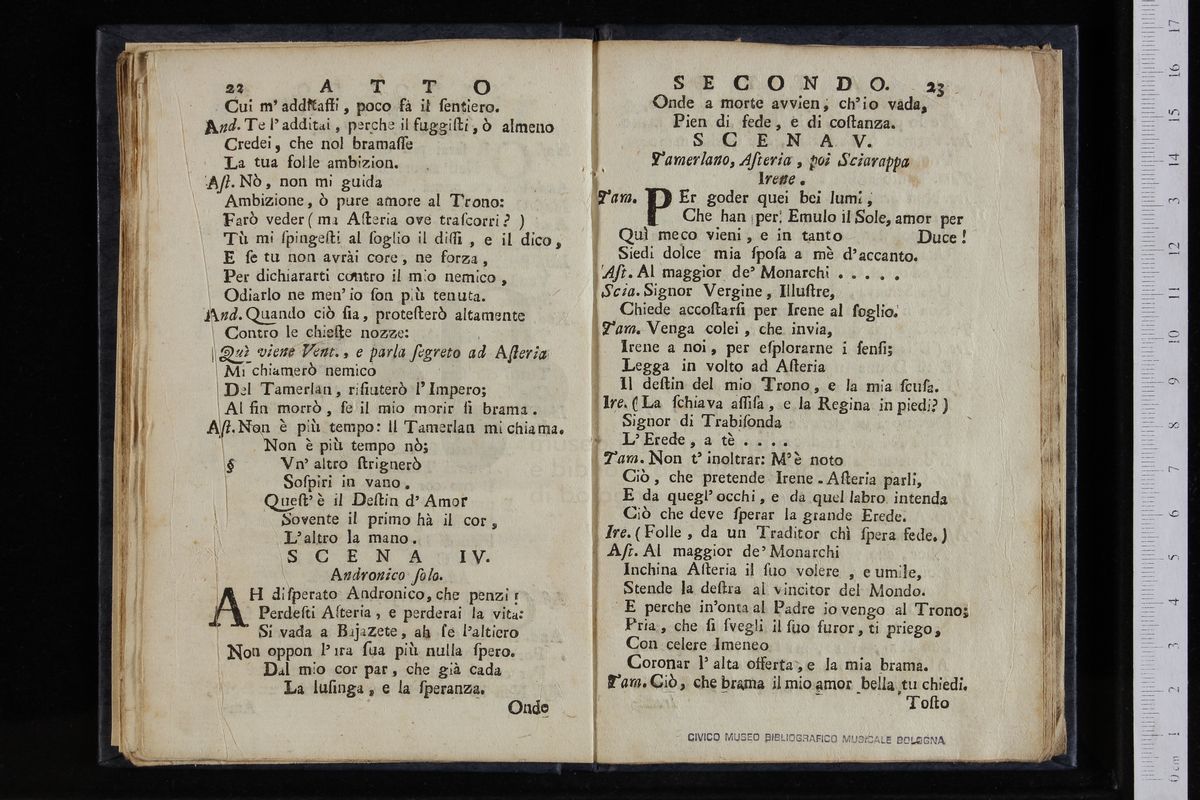 22 A T T O
Cui m' additasti, poco fà il sentiero.
And. Te l' additai, perche il fuggisti, ò almeno
Credei, che nol bramasse
La tua folle ambizion.
Ast. Nò, non mi guida
Ambizione, ò pure amore al Trono:
Farò veder (ma Asteria ove trascorri? )
Tù mi spingesti al soglio il dissi, e il dico,
E se tu non avrài core, ne forza,
Per dichiararti contro il mio nemico,
Odiarlo ne men' io son più tenuta.
And. Quando ciò sia, protesterò altamente
Contro le chieste nozze:
Quì viene Vent., e parla segreto ad Asteria
Mi chiamerò nemico
Del Tamerlan, rifiuterò l' Impero;
Al fin morrò, se il mio morir si brama.
Ast. Non è più tempo: il Tamerlan mi chiama.
Non è più tempo nò;
§ Vn' altro strignerò
Sospiri in vano.
Quest' è il Destin d' Amor
Sovente il primo hà il cor,
L' altro la mano.
S C E N A IV.
Andronico solo.
AH disperato Andronico, che penzi?
Perdesti Asteria, e perderai la vita:
Si vada a Bajazete, ah se l'altiero
Non oppon l' ira sua più nulla spero.
Dal mio cor par, che già cada
La lusinga, e la speranza.
Onde
S E C O N D O. 23
Onde a morte avvien, ch'io vada,
Pien di fede, e di costanza.
S C E N A V.
Tamerlano, Asteria, poi Sciarappa
Irene.
Tam. PEr goder quei bei lumi,
Che han per Emulo il Sole, amor per
Quì meco vieni, e in tanto Duce!
Siedi dolce mia sposa a mè d'accanto.
Ast. Al maggior de' Monarchi . . . . .
Scia. Signor Vergine, Illustre,
Chiede accostarsi per Irene al soglio.
Tam. Venga colei, che invia,
Irene a noi, per esplorarne i sensi;
Legga in volto ad Asteria
Il destin del mio Trono, e la mia scusa.
Ire. (La schiava assisa, e la Regina in piedi?)
Signor di Trabisonda
L' Erede, a tè . . . .
Tam. Non t' inoltrar: M'è noto
Ciò, che pretende Irene. Asteria parli,
E da quegl' occhi, e da quel labro intenda
Ciò che deve sperar la grande Erede.
Ire. (Folle, da un Traditor chì spera fede.)
Ast. Al maggior de' Monarchi
Inchina Asteria il suo volere, e umile,
Stende la destra al vincitor del Mondo.
E perche in'onta al Padre io vengo al Trono;
Pria, che si svegli il suo furor, ti priego,
Con celere Imeneo
Coronar l' alta offerta, e la mia brama.
Tam. Ciò, che brama il mio amor bella tu chiedi.
Tosto
CIVICO MUSEO BIBLIOGRAFICO MUSICALE BOLOGNA
0 cm 1 2 3 4 5 6 7 8 9 10 11 12 13 14 15 16 17